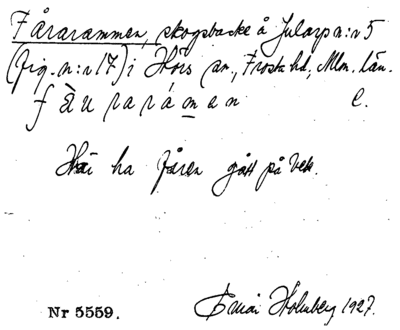 Fårarammen, skogsbacke å Jularp n:r 5
(fig. n:r 17) i Hörs sn., Frosta hd., Mlm. län.
fåuraråmen e.
Här ha fåren gått på bete.
Nr 5559.
Esmai Holmberg 1927.